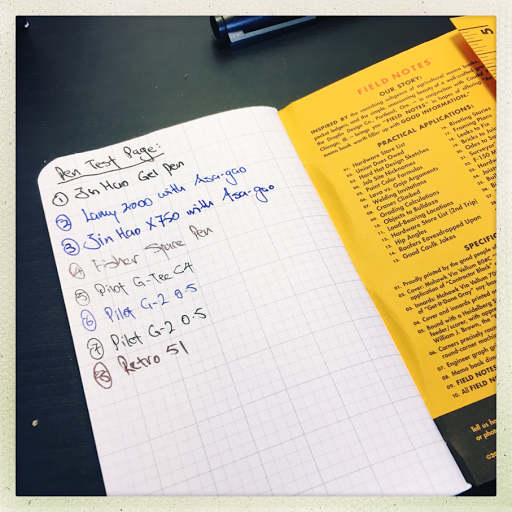 Pen Test Page:
① Jin Hao Gel Pen
② Lamy 2000 with Asa-gao
③ Jin Hao X750 with Asa-gao
④ Fisher Space Pen
⑤ Pilot G-Tec C4
⑥ Pilot G-2 0.5
⑦ Pilot G-2 0.5
⑧ Retro 51
FIELD NOTES
OUR STORY:
INSPIRED BY the vanishing subgenre of agricultural memo
pocket ledgers, and the simple, unassuming beauty of a well-crafted
the Draplin Design Co., Portland, Ore. – in conjunction with
Chicago, Ill. – brings you "FIELD NOTES" in hopes of offering
memo book worth filling up with GOOD INFORMATION."
PRACTICAL APPLICATIONS:
01. Hardware Store List
02. Union Dues Owed
03. Hard Hat Design Sketches
04. Job Site Nicknames
05. Paint Color Formulas
06. Lava vs. Gojo Arguments
07. Welding Invitations
08. Cranes Climbed
09. Grading Calculations
10. Objects to Bulldoze
11. Load-Bearing Locations
12. Hardware Store List (2nd Trip)
13. Hip Angles
14. Roofers Eavesdropped Upon
15. Good Caulk Jokes
16. Riveting Stories
17. Framing Plans
18. Leaks to Fix
19. Bricks to
20.
21. Surveyor
22. F-150
SPECIFIC
01. Proudly printed by the good people of
02. Cover: Mohawk Via Vellum
application of "Contractor Black"
03. Innards: Mohawk Via Vellum
of "Get-It-Done Gray" soy
04. Cover and innards printed
05. Bound with a Heidelberg
feeder/scorer, with
William J. Brown, the
06. Corners precisely
round-corner machine
07. Engineer graph
08. Memo book
09. FIELD NOTES
10. All FIELD
Tell us
or